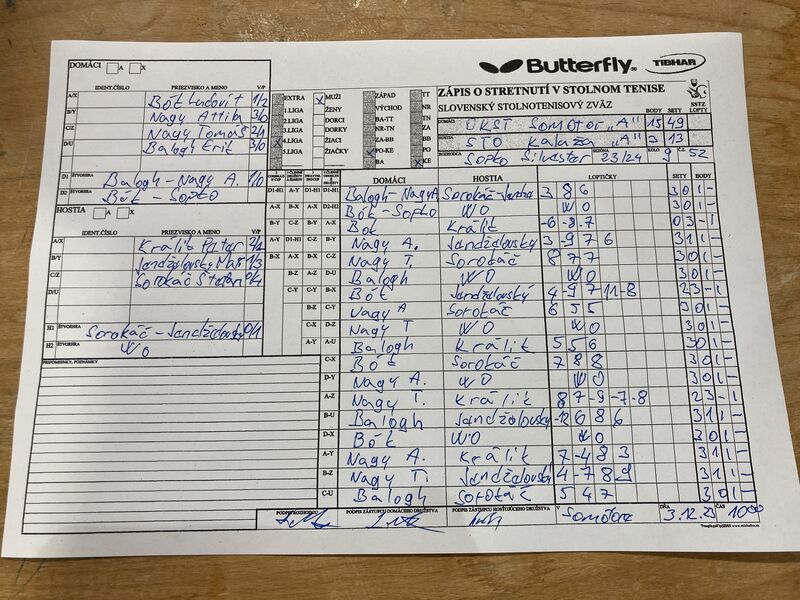 DOMÁCI A X
Butterfly TIBHAR
IDENT.ČÍSLO PRIEZVISKO A MENO V/P
ZÁPIS O STRETNUTÍ V STOLNOM TENISE
SLOVENSKÝ STOLNOTENISOVÝ ZVÄZ
SSTZ LOPTY
A/X Bók Ľudovít 1/2
B/Y Nagy Attila 3/0
C/Z Nagy Tomáš 2/1
D/U Balogh Erik 3/0
EXTRA X MUŽI ZÁPAD TT
1.LIGA ŽENY VÝCHOD NR
2.LIGA DORCI BA-TT TN
3.LIGA DORKY NR-TN ZA
4.LIGA ŽIACI ZA-BB BB
5.LIGA ŽIAČKY PO-KE PO
BA KE
DOMÁCI OKST Somotor "A" BODY 15 SETY 49
HOSTIA STO Kalaža "A" 3 13
Sopko Silvester SEZÓNA 23/24 KOLO 9 Č.Z. 52
D1 ŠTVORHRA Balogh-Nagy A. 1/0
D2 Bók - Sopko
HOSTIA A X
IDENT.ČÍSLO PRIEZVISKO A MENO V/P
A/X Králik Peter
B/Y Jandžalovský 1/3
C/Z Sorokáč Štefan 0/4
D/U
H1 ŠTVORHRA Sorokáč-Jandžalovský 0/1
H2 ŠTVORHRA WO
PRIPOMIENKY, POZNÁMKY
DOMÁCI HOSTIA LOPTIČKY SETY BODY
D1-H1 Balogh-Nagy A Sorokáč-Jandža 3 8 6 3 0 1 -
D2-H2 Bók-Sopko WO WO 3 0 1 -
A-X Bók Králik -6 -8 -7 0 3 - 1
B-Y Nagy A. Jandžalovský 3 -9 7 6 3 1 1 -
C-Z Nagy T. Sorokáč 8 7 7 3 0 1 -
D-U Balogh WO WO 3 0 1 -
A-Y Bók Jandžalovský 4 -9 7 11 -8 2 3 - 1
B-Z Nagy A Sorokáč 6 5 5 3 0 1 -
C-U Nagy T WO WO 3 0 1 -
A-U Balogh Králik 5 5 6 3 0 1 -
C-X Bók Sorokáč 7 8 8 3 0 1 -
D-Y Nagy A. WO WO 3 0 1 -
A-Z Nagy T. Králik 8 7 -9 -7 -8 2 3 - 1
B-U Balogh Jandžalovský -12 6 8 6 3 1 1 -
D-X Bók WO WO 3 0 1 -
A-Y Nagy A. Králik 7 -4 8 3 3 1 1 -
B-Z Nagy T. Jandžalovský 4 -7 8 9 3 1 1 -
C-U Balogh Sorokáč 5 4 7 3 0 1 -
PODPIS ROZHODCU PODPIS ZÁSTUPCU DOMÁCEHO DRUŽSTVA PODPIS ZÁSTUPCU HOSŤUJÚCEHO DRUŽSTVA V Somotore DŇA 3.12.23 ČAS 10:00